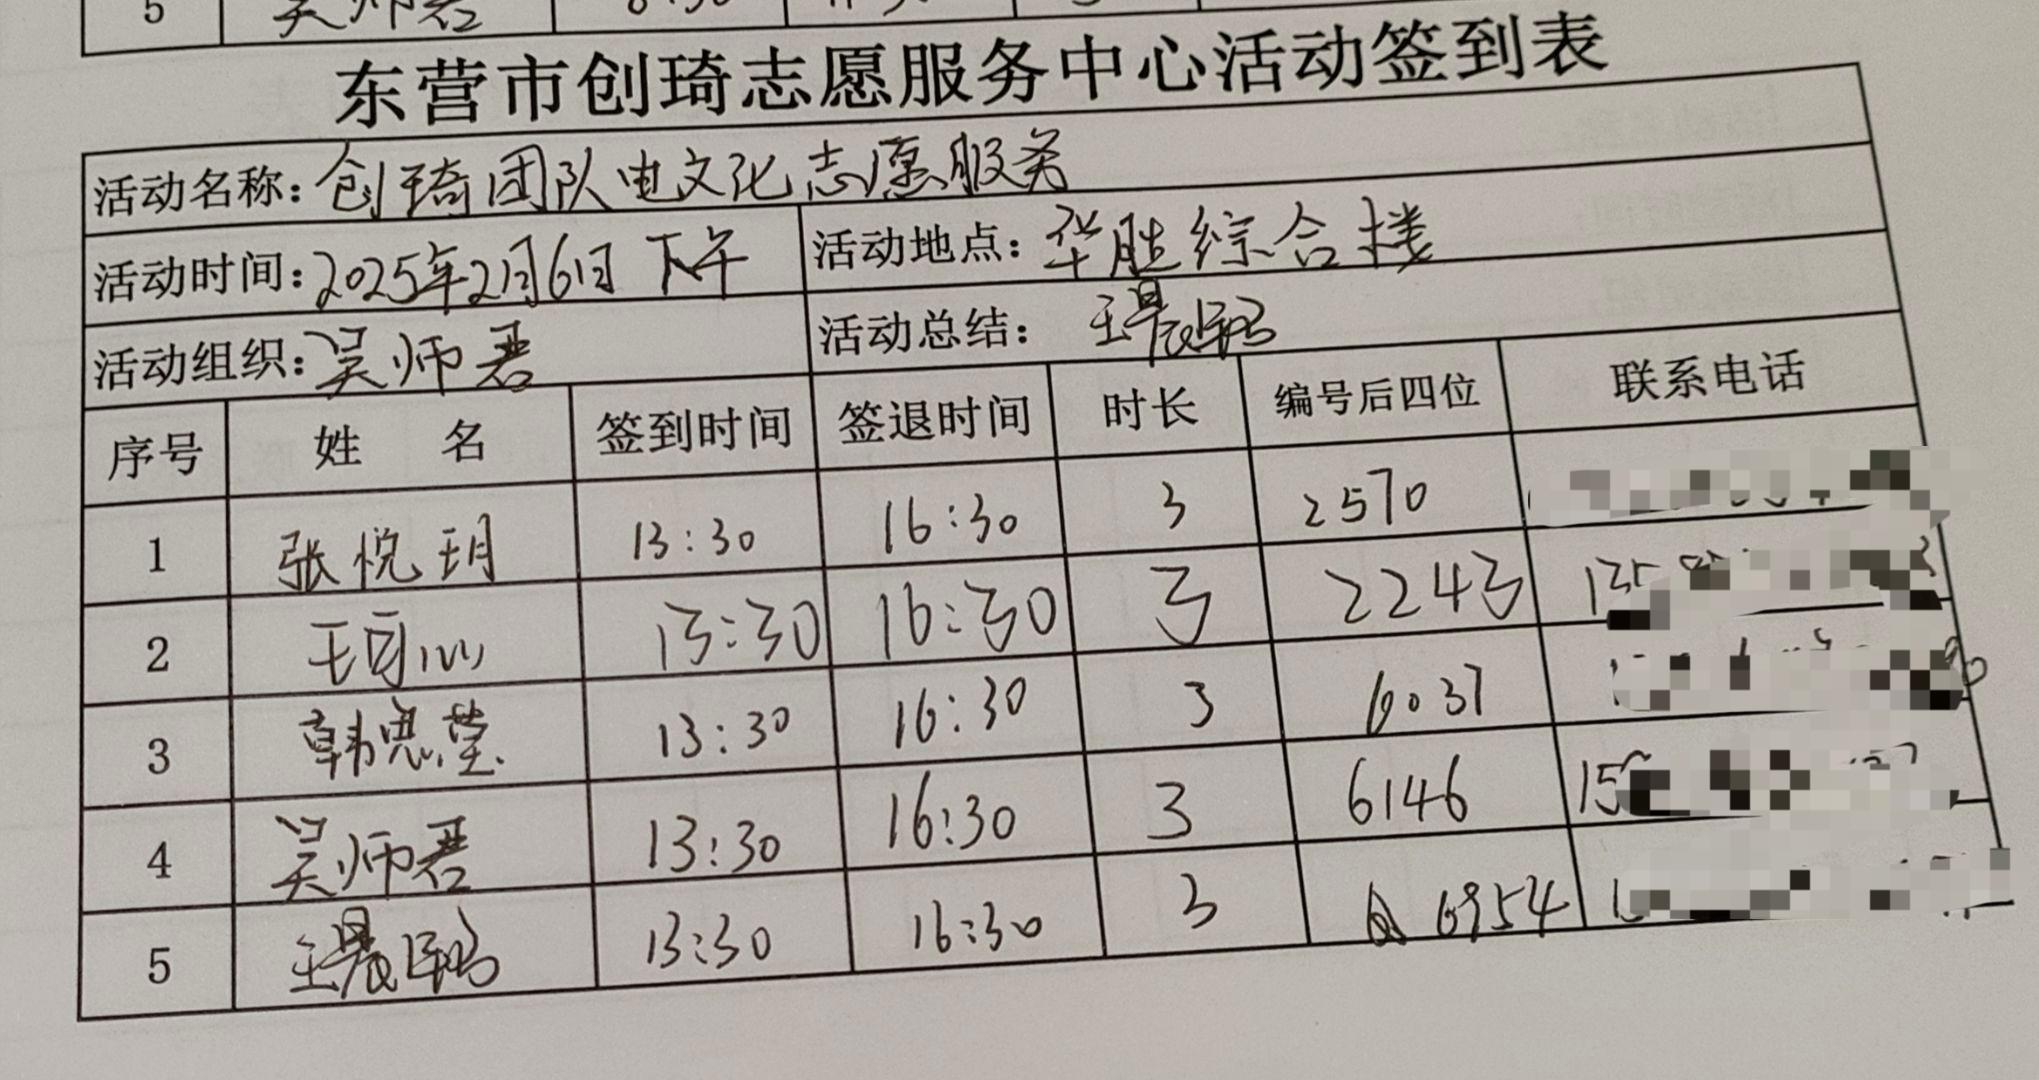 5 吴师君 8:30
东营市创琦志愿服务中心活动签到表
活动名称：创琦团队电文化志愿服务
活动时间：2025年2月6日 下午 活动地点：华胜综合楼
活动组织：吴师君 活动总结：王晨
序号 姓 名 签到时间 签退时间 时长 编号后四位 联系电话
1 张悦玥 13:30 16:30 3 2570
2 王可心 13:30 16:30 3 2243
3 韩思莹 13:30 16:30 3 6037
4 吴师君 13:30 16:30 3 6146
5 王晨 13:30 16:30 3 6954